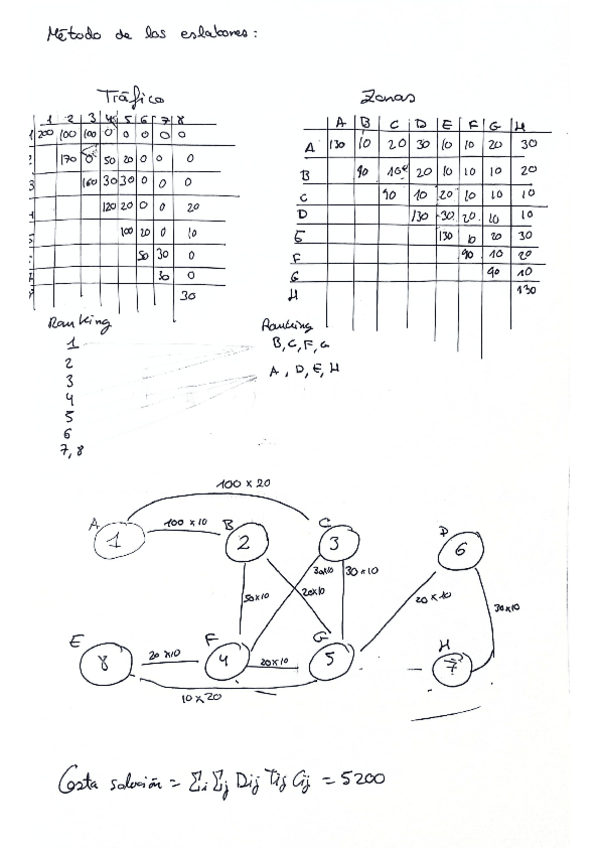 Método de los eslabones:
Tráfico
1 2 3 4 5 6 7 8
1 200 100 100 0 0 0 0 0
170 0 50 20 0 0 0
3 160 30 30 0 0 0
120 20 0 0 20
100 20 0 10
50 30 0
30 0
30
Zonas
A B C D E F G H
A 130 10 20 30 10 10 20 30
B 90 10 20 10 10 10 20
C 90 10 20 10 10 10
D 130 30 20 10 10
E 130 10 20 30
F 90 10 20
G 90 10
H 130
Ranking
1
2
3
4
5
6
7, 8
Ranking
B, C, F, G
A, D, E, H
100 x 20
A 1
100 x 10
B 2
C 3
D 6
50x10
20x10
30x10
30x10
20x10
30x10
E 8
20 x10
F 4
20x10
G 5
H 7
10 x 20
Costa solución = Σi Σj Dij Tij Cij = 5200